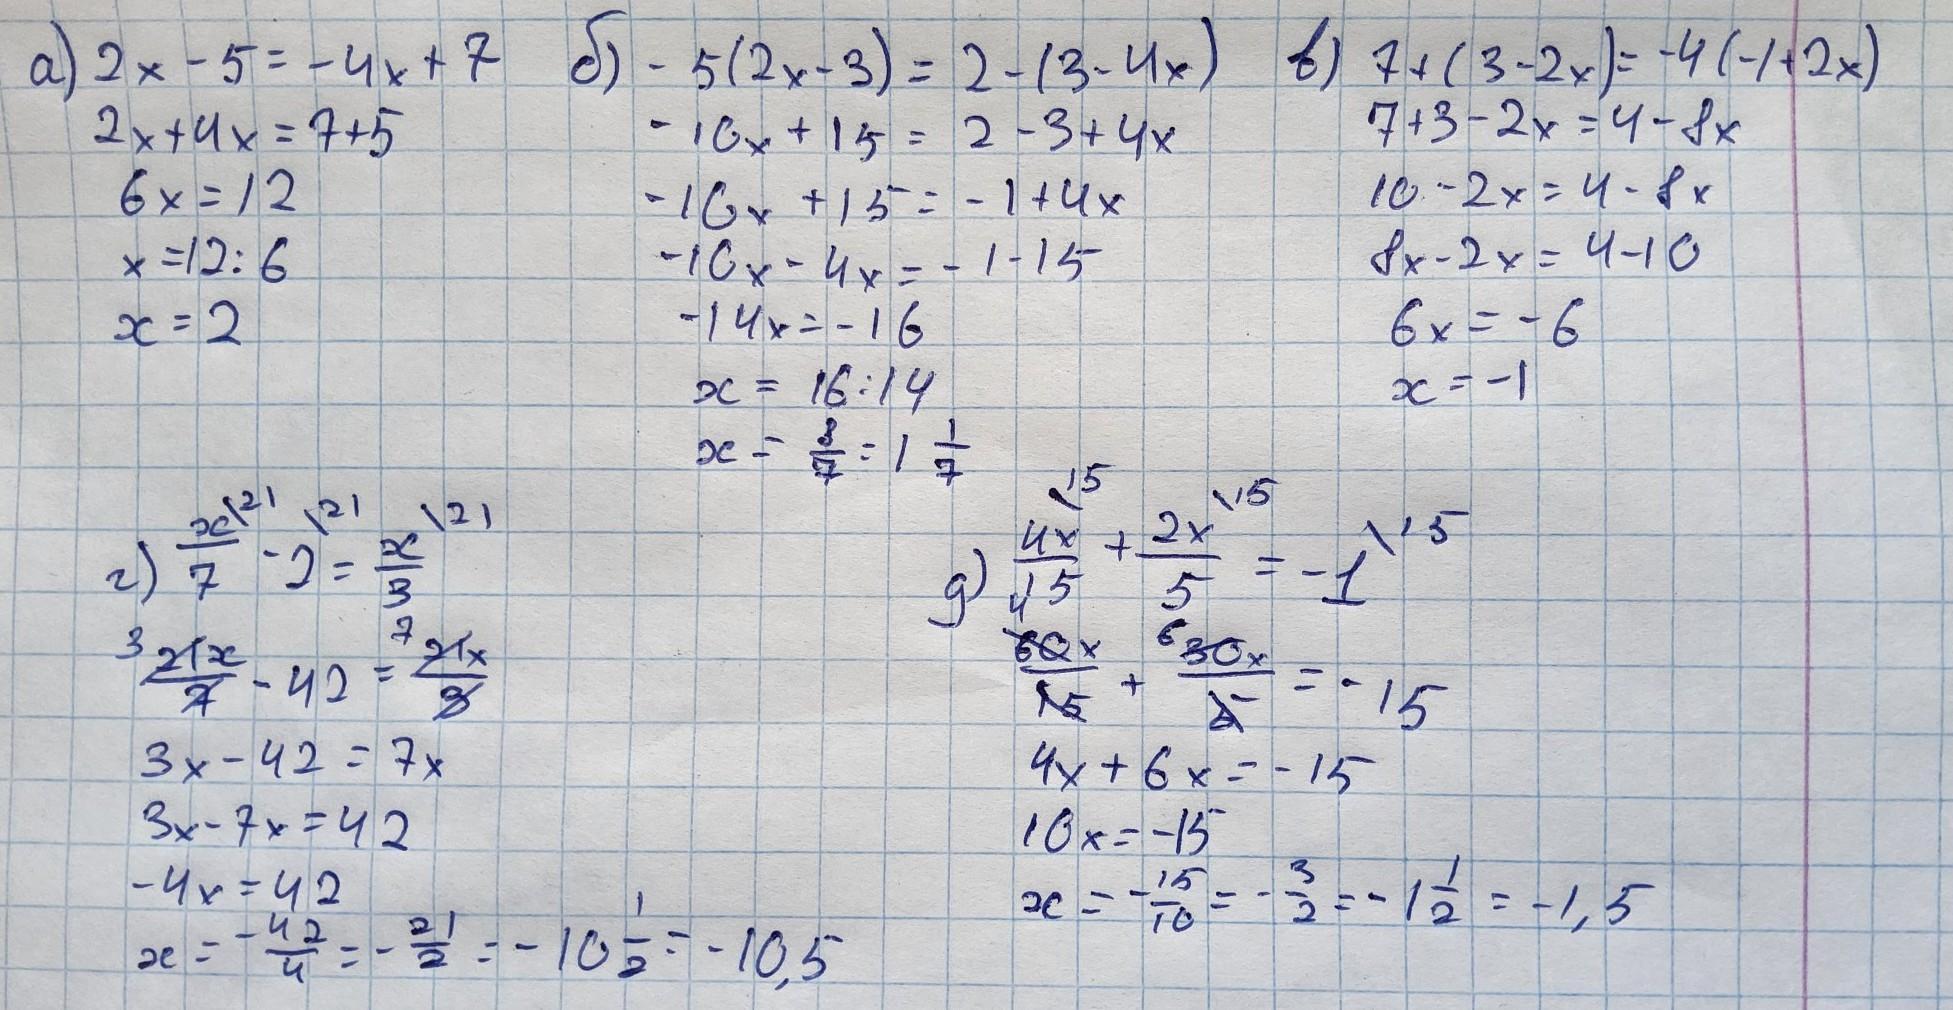 а) 2x - 5 = -4x + 7
2x + 4x = 7 + 5
6x = 12
x = 12 : 6
x = 2
б) -5(2x - 3) = 2 - (3 - 4x)
-10x + 15 = 2 - 3 + 4x
-10x + 15 = -1 + 4x
-10x - 4x = -1 - 15
-14x = -16
x = 16 : 14
x = 8/7 = 1 1/7
в) 7 + (3 - 2x) = -4(-1 + 2x)
7 + 3 - 2x = 4 - 8x
10 - 2x = 4 - 8x
8x - 2x = 4 - 10
6x = -6
x = -1
г) x/7 \21 - 2 \21 = x/3 \21
3 21x/7 - 42 = 7 21x/3
3x - 42 = 7x
3x - 7x = 42
-4x = 42
x = -42/4 = -21/2 = -10 1/2 = -10,5
д) 4x/15 \15 + 2x/5 \15 = -1 \15
4 60x/15 + 6 30x/5 = -15
4x + 6x = -15
10x = -15
x = -15/10 = -3/2 = -1 1/2 = -1,5